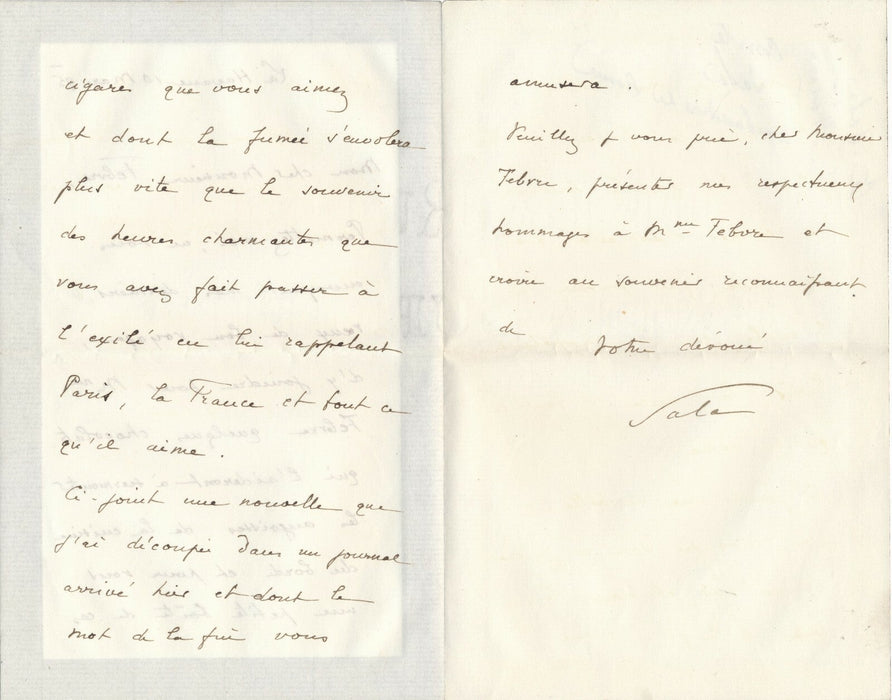 cigares que vous aimez
et dont la fumée s'envolera
plus vite que le souvenir
des heures charmantes que
vous avez fait passer à
l'exilé en lui rappelant
Paris, la France et tout ce
qu'il aime.
Ci-joint une nouvelle que
j'ai découpée dans un journal
arrivé hier et dont le
mot de la fin vous
amusera.
Veuillez je vous prie, cher Monsieur
Febvre, présenter mes respectueux
hommages à Mme Febvre et
croire au souvenir reconnaissant
de
Votre dévoué
Sala